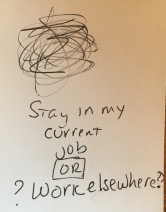 Stay in my
current
job
OR
? Work elsewhere?